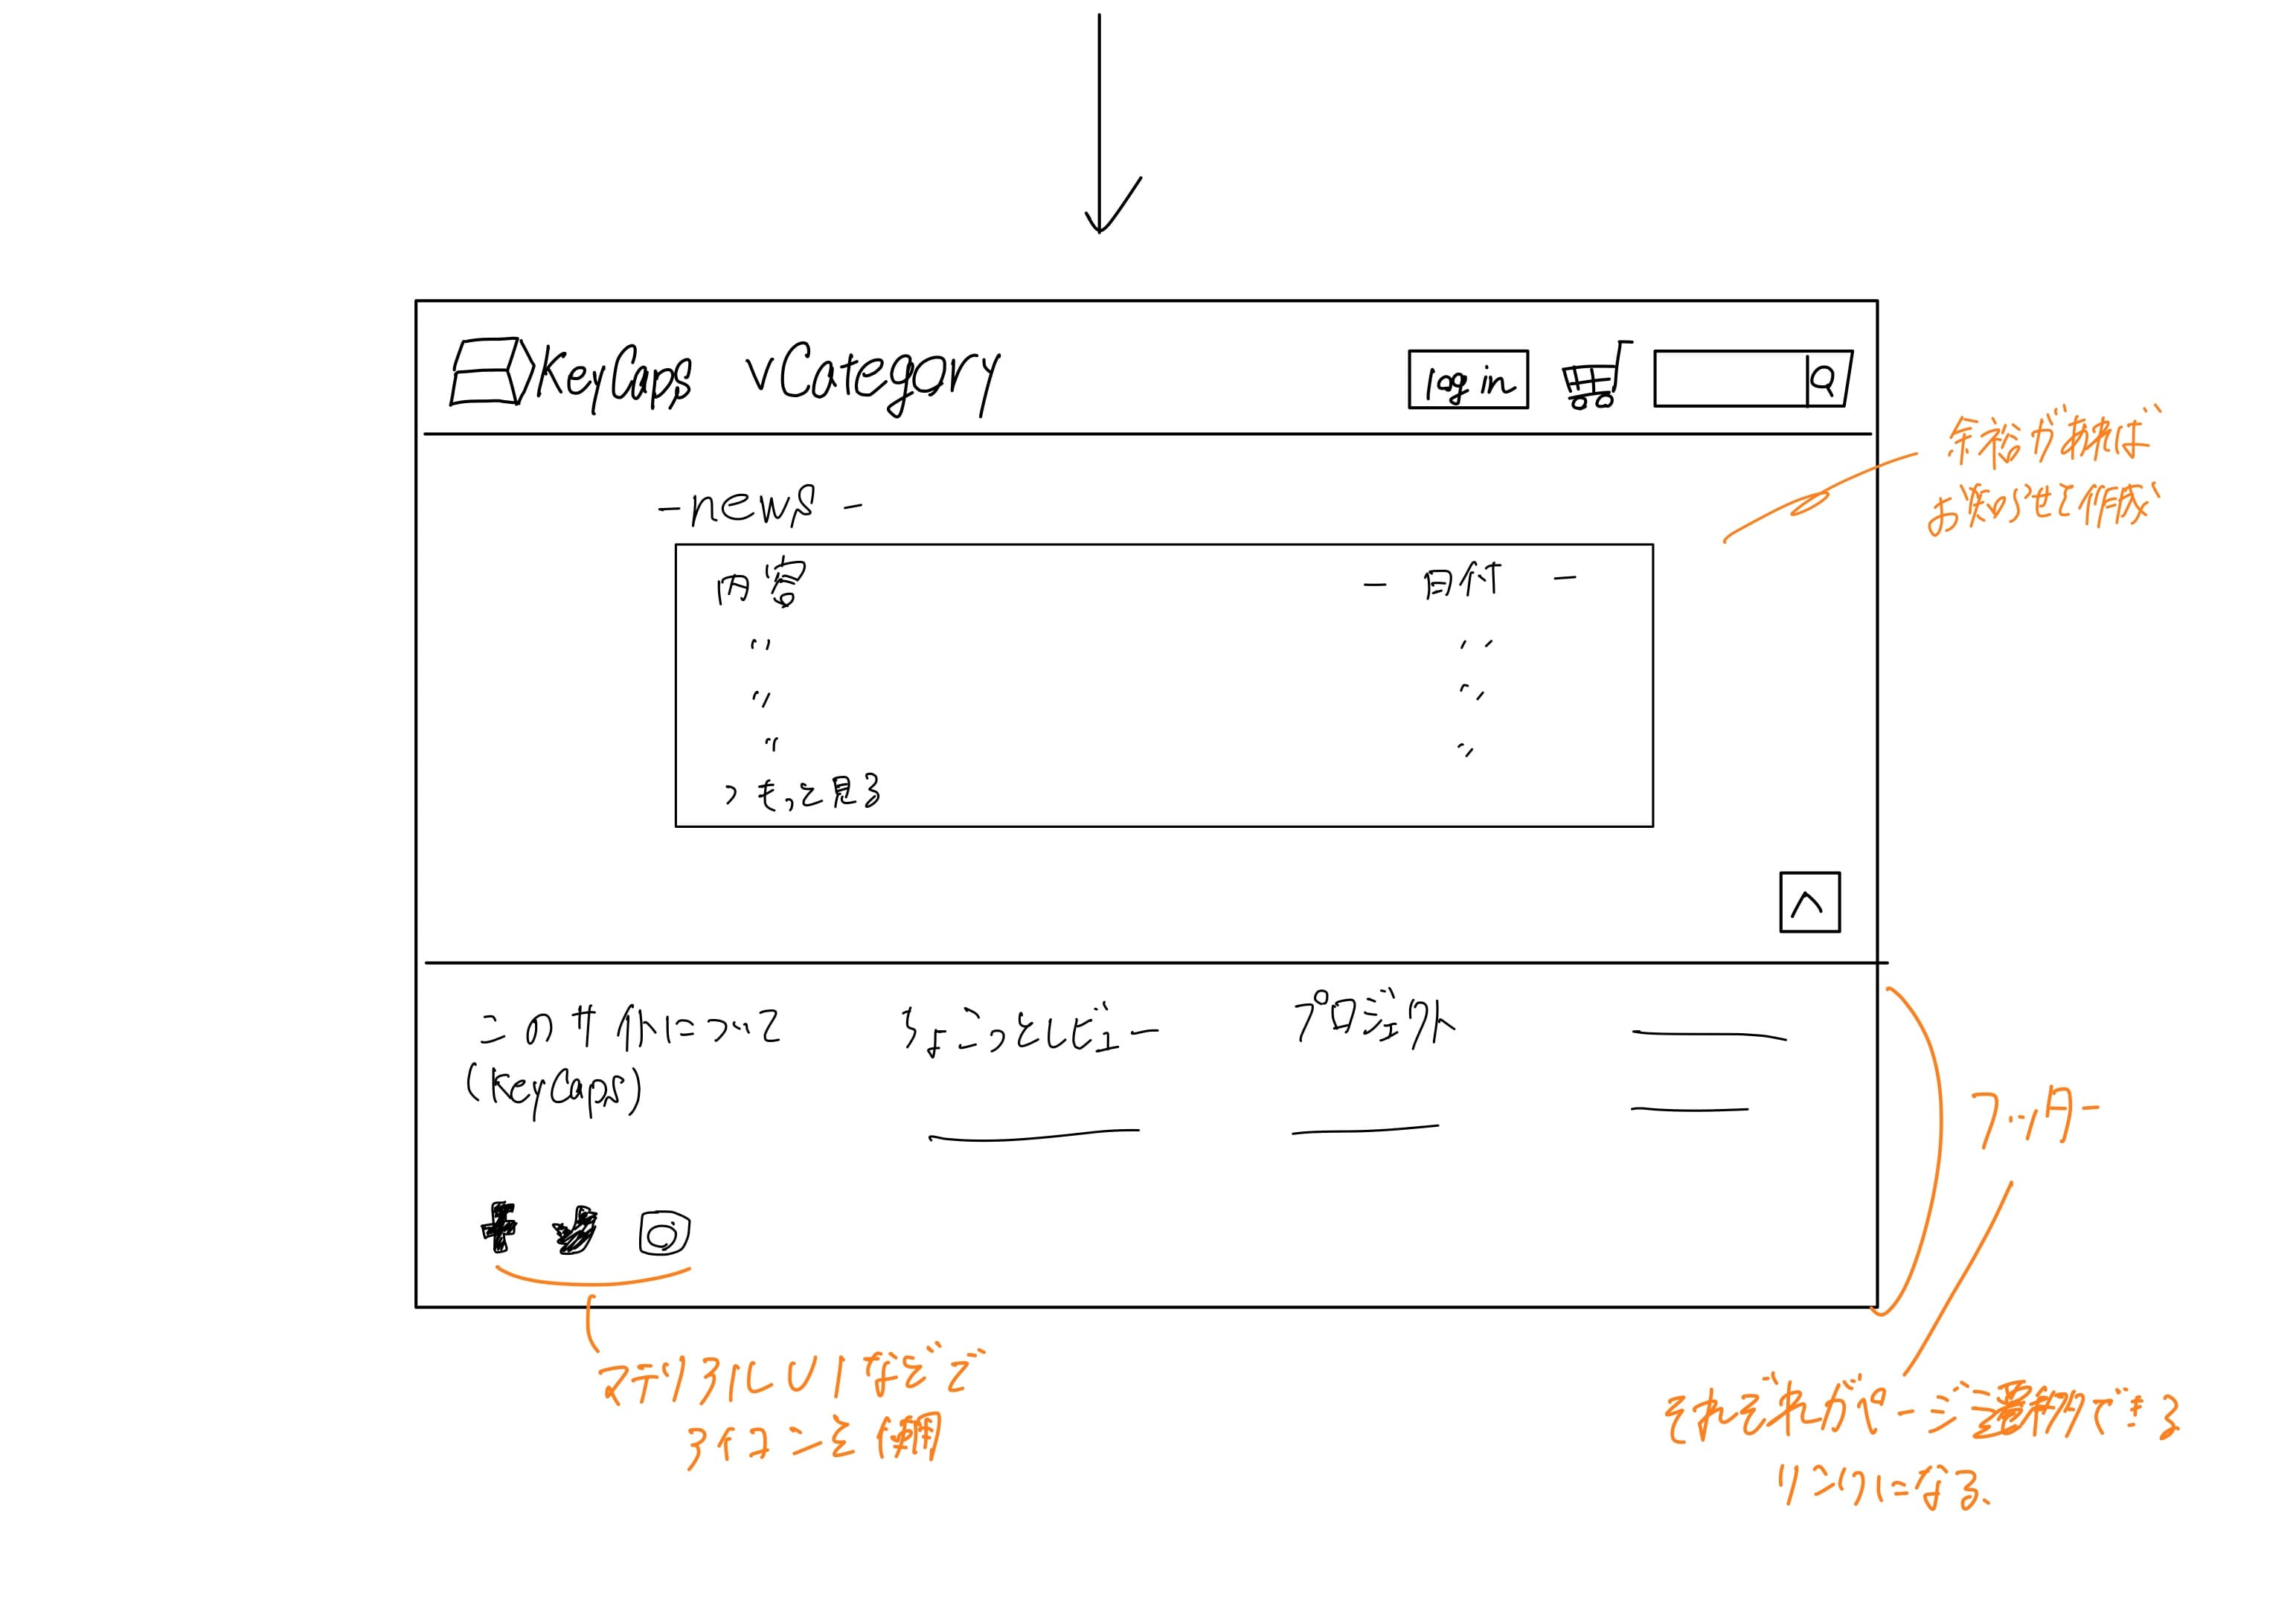 KeyCaps ∨Category log in
余裕があれば
お知らせを作成
-news-
内容 - 日付 -
〃 〃
〃 〃
〃 〃
> もっと見る
^
このサイトについて ちょこっとレビュー プロジェクト
(KeyCaps)
フッター
マテリアルUIなどで
アイコンを使用
それぞれがページ遷移できる
リンクになる。